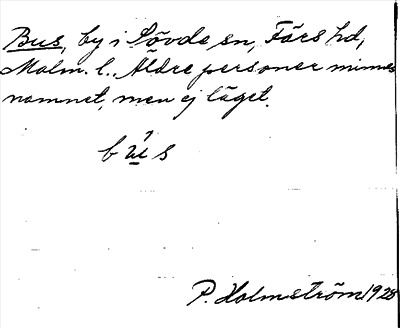 Bus, by i Sövde sn, Färs hd,
Malm. l. Äldre personer minnes
namnet, men ej läget.
bús
P. Holmström 1928